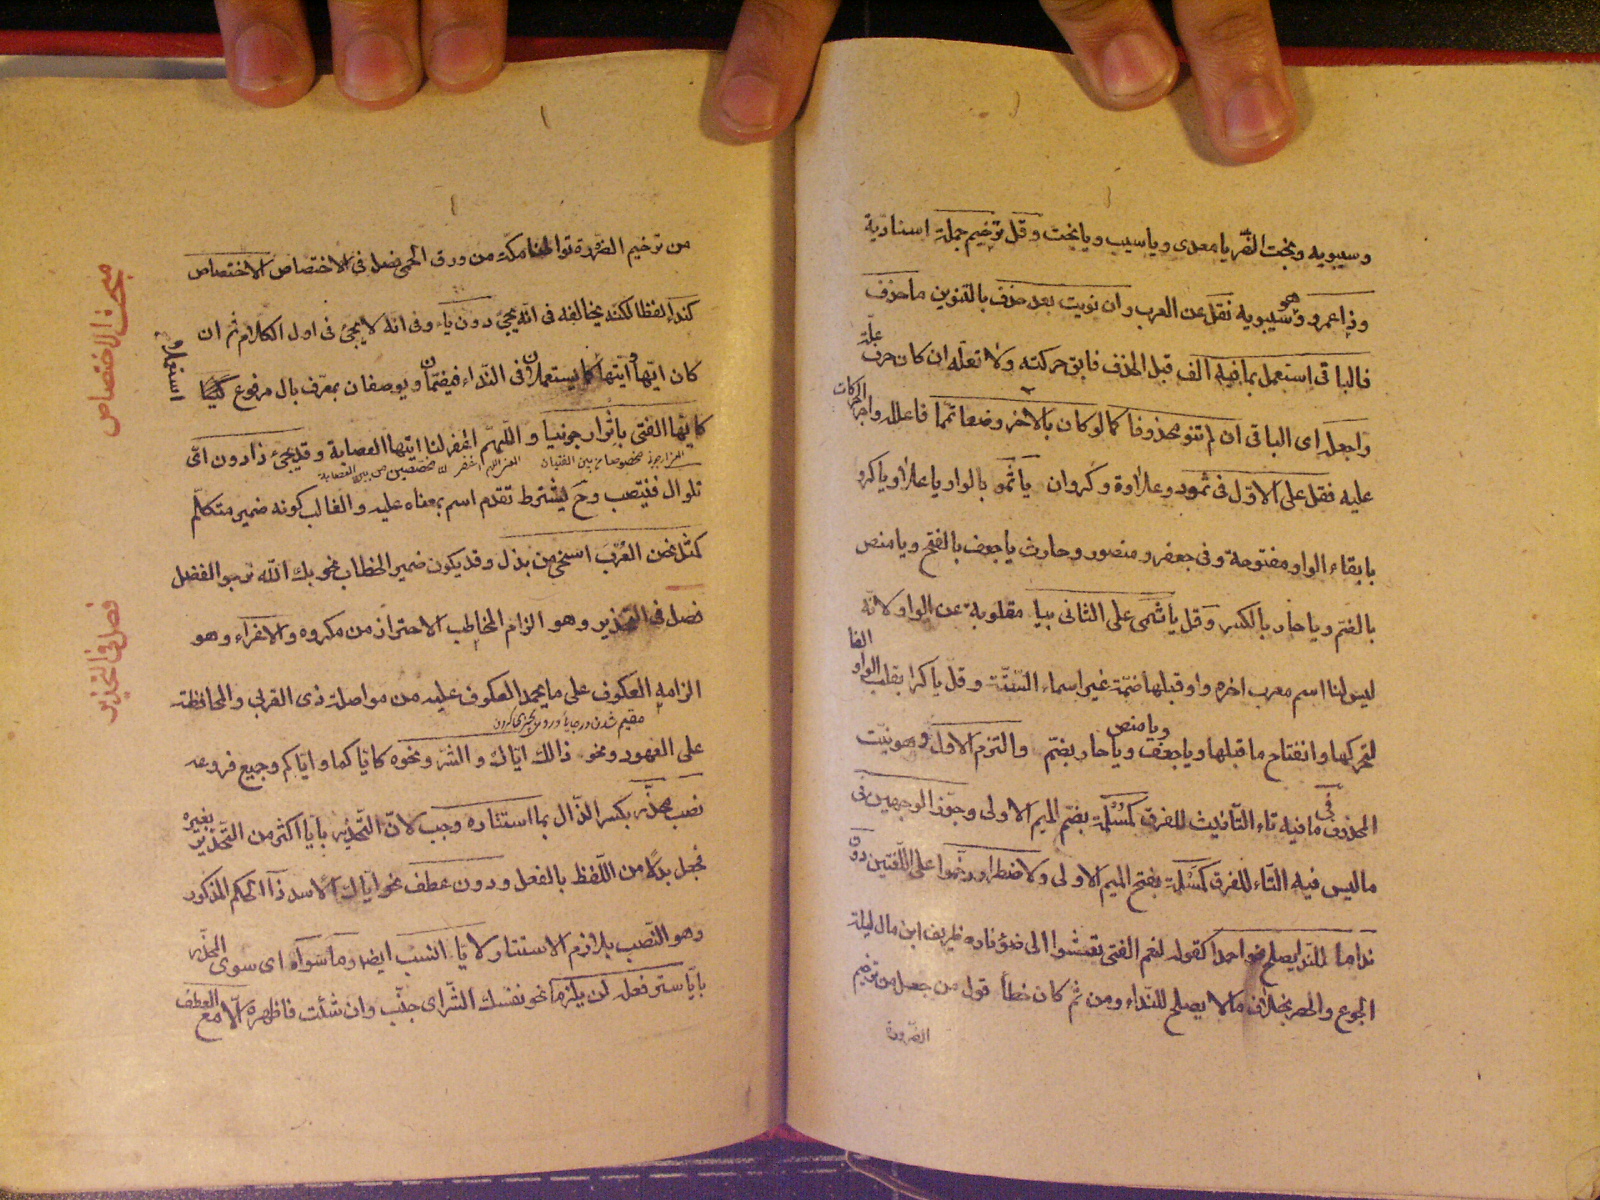 وسيبويه وبخت النصر يا معدى ويا سيب ويا بخت وقل ترخيم جملة اسنادية
وذا عمرو وهو سيبويه نقل عن العرب وان نويت بعد حذف بالتنوين ما حذف
فالباقى استعمل بما فيه الف قبل الحذف فابق حركته ولا تعلّه ان كان حرف علّة
واجعله اى الباقى ان لم تنو محذوفا كما لو كان بالآخر وضعا تمّما فاعلله واجر الحركات
عليه فقل على الاوّل فى ثمود وعلاوة وكروان يا ثمو بالواو يا علاو يا كرو
بابقاء الواو مفتوحة وفى جعفر ومنصور وحارث يا جعف بالفتح ويا منص
بالضم ويا حار بالكسر وقل يا ثمى على الثانى بيا مقلوبة عن الواو لانّه
ليس لنا اسم معرب آخره واو قبلها ضمّة غير اسماء الستّة وقل يا كرا بقلب الواو الفا
لتحركها وانفتاح ما قبلها ويا جعف ويا حار بضمّ ويا منص والتزم الاول وهو نيت
المحذوف فى ما فيه تاء التأنيث للفرق كمسلمة بضم الميم الاولى وجوّز الوجهين فى
ما ليس فيه التاء للفرق كمسلمة بفتح الميم الاولى ولاضطرار رخّموا على اللّغتين دون
نداما للندا يصلح نحو احمدا كقوله لنعم الفتى تعشوا الى ضوء ناره ظريف ابن مال ليلة
الجوع والحصر بخلاف ما لا يصلح للنداء ومن ثم كان خطأ قول من جعل من ترخيم
الضرورة
من ترخيم الضرورة قواطنا مكة من ورق الحمى فصل فى الاختصاص الاختصاص
كنداء لفظا لكنه يخالفه فى انّه يجئ دون ياء وفى انه لا يجئ فى اول الكلام ثم ان
كان ايّها وايّتها كما يستعملان فى النداء فيضمّان ويوصفان بمعرّف بال مرفوع
استعملا
كايّها الفتى باثر ارجونيا و اللّهمّ اغفر لنا ايّتها العصابة وقد يجئ ذا دون اىّ
تلو ال فينتصب وح يشترط تقدم اسم بمعناه عليه والغالب كونه ضمير متكلّم
كمثل نحن العرب اسخى من بذل وقد يكون ضمير الخطاب نحو بك الله نرجو الفضل
فصل فى التحذير وهو الزام المخاطب الاحتراز من مكروه والاغراء وهو
الزامه العكوف على ما يحمد العكوف عليه من مواصلة ذى القربى والمحافظة
على العهود ونحو ذالك ايّاك والشرّ ونحوه كايّاكما واياكم وجميع فروعه
نصب محذّر بكسر الذّال بما استتاره وجب لانّ التّحذير بايّا اكثر من التّحذير بغيره
فجعل بدلا من اللّفظ بالفعل ودون عطف نحو اياك الاسد ذا اى الحكم المذكور
وهو النّصب بلازم الاستتار لايّا انسب ايضا وما سواه اى سوى المحذّر
بايّا ستر فعله لن يلزما نحو نفسك الشرّ اى جنّب وان شئت فاظهره الّا مع العطف
مبحث الاختصاص
فصل فى التحذير